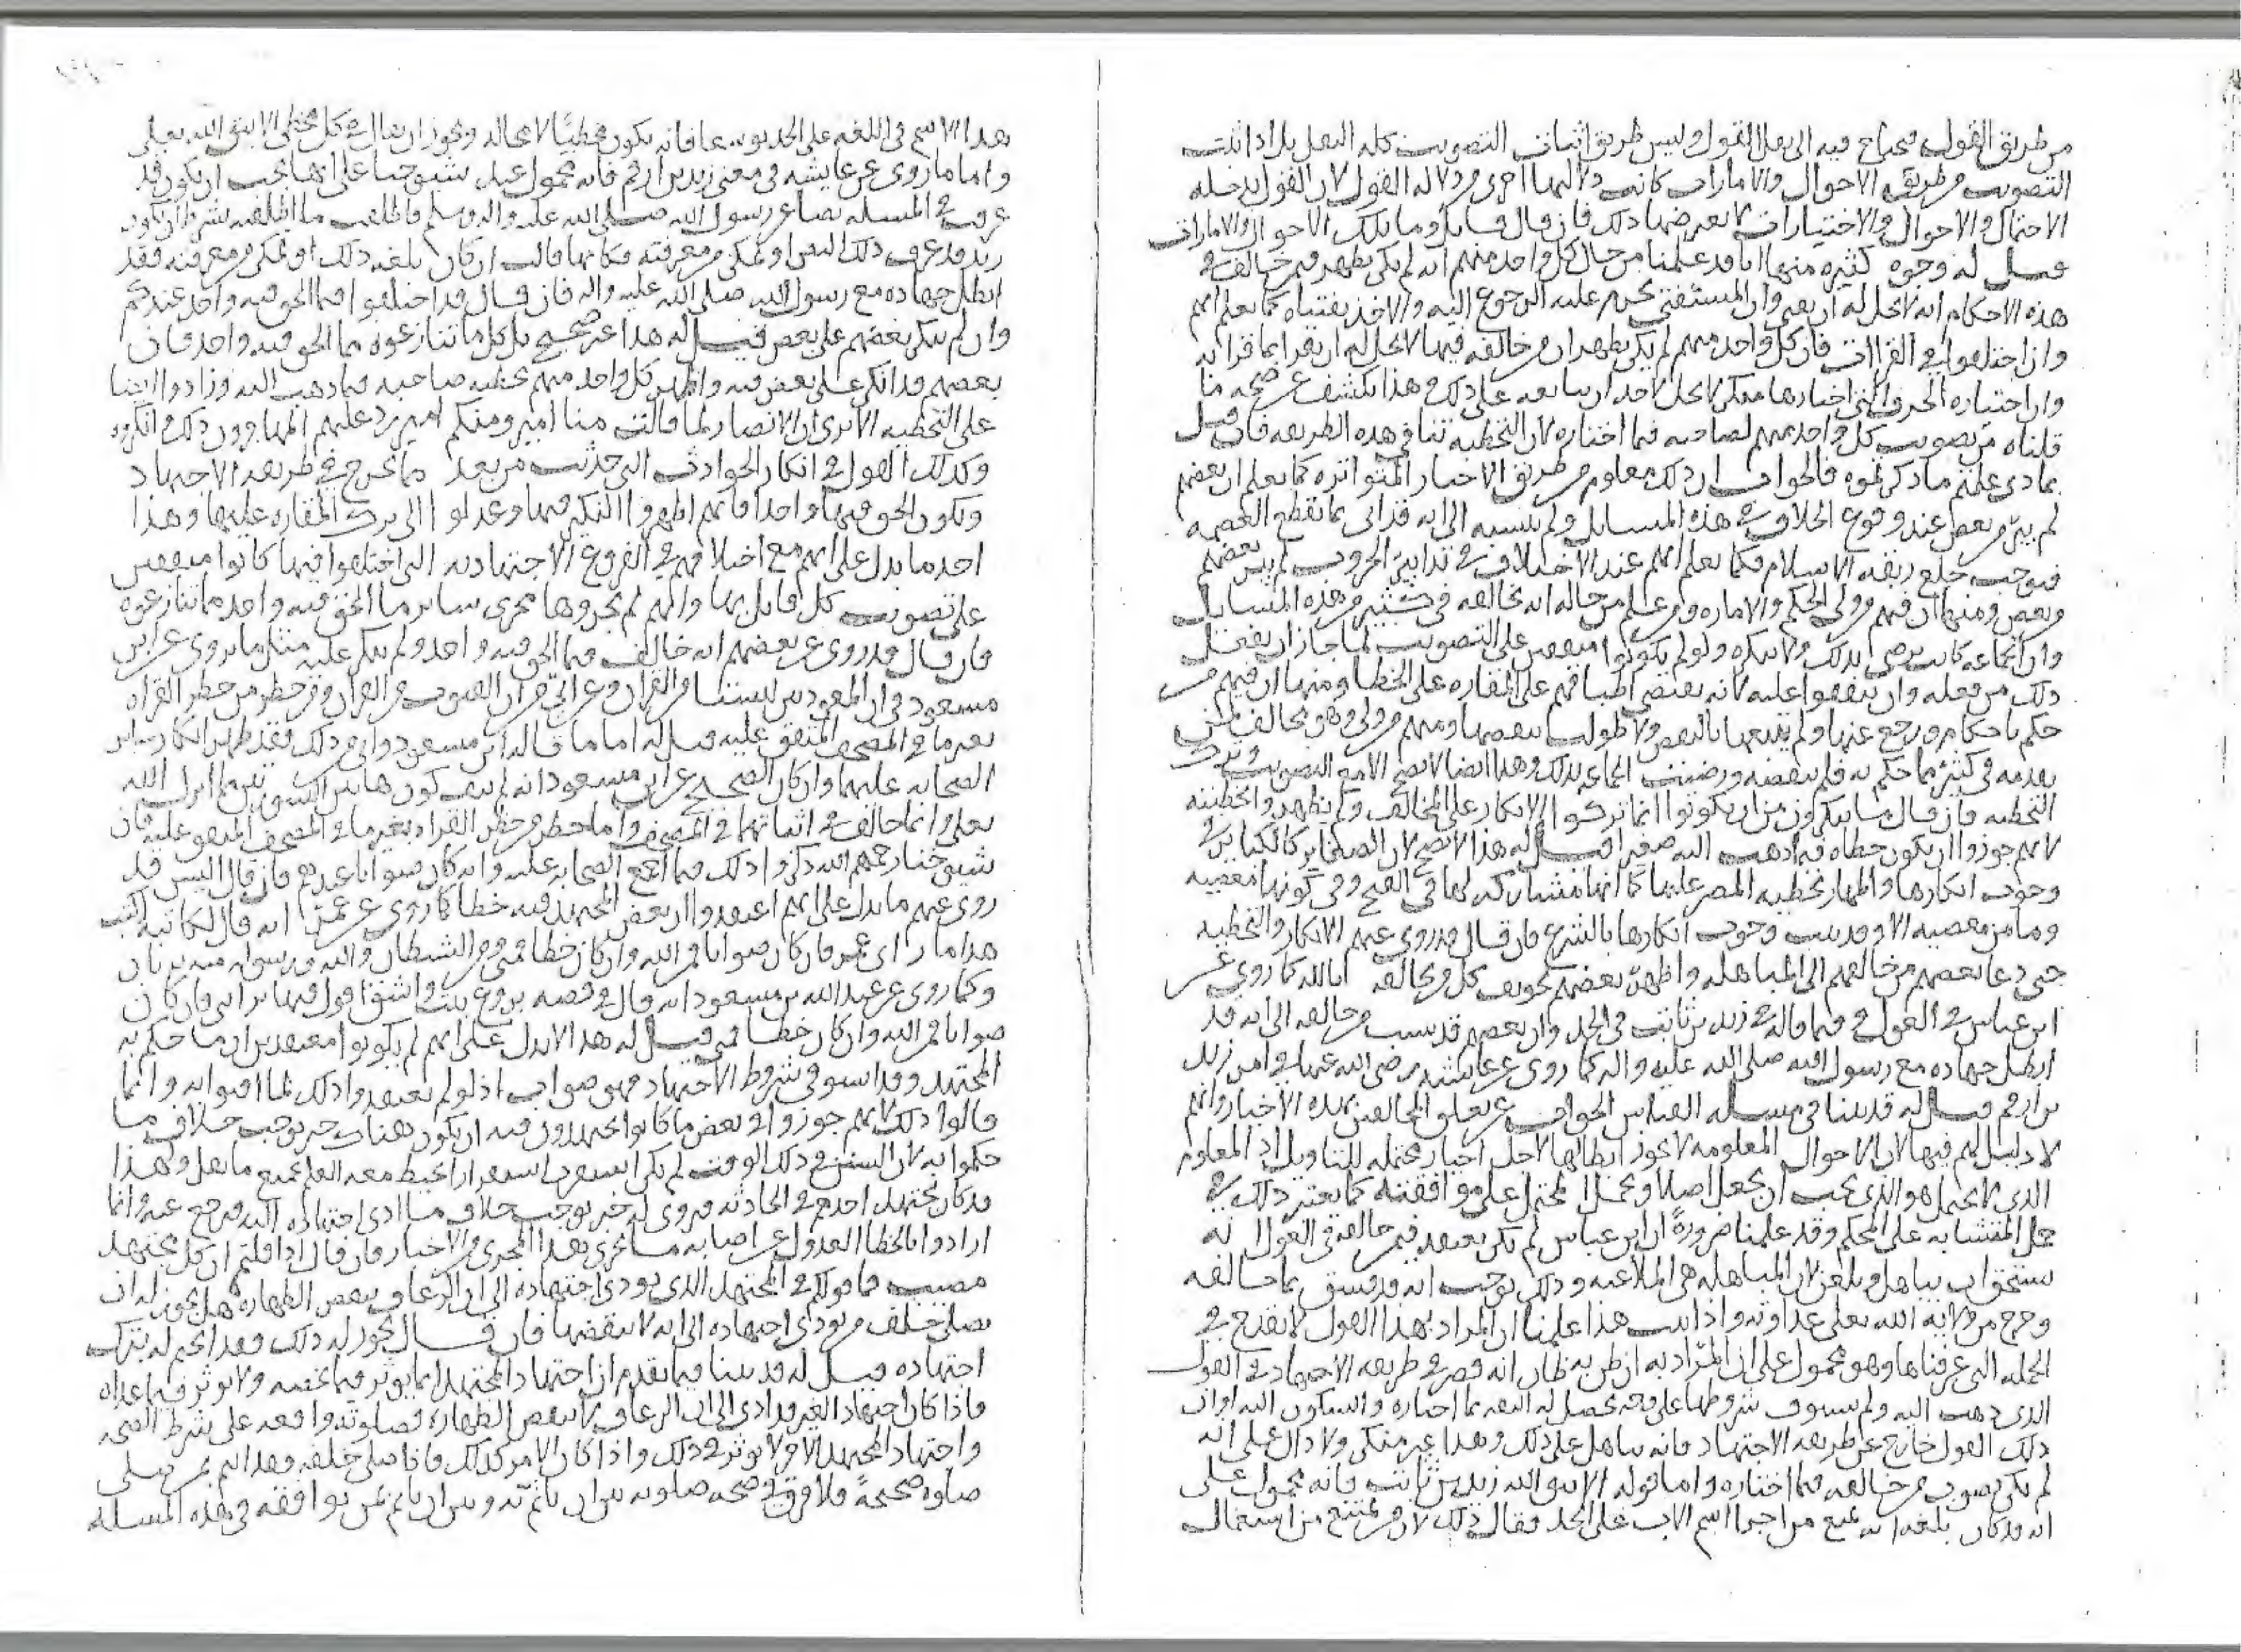 من طريق القول فيحتاج فيه الى نقل القول وليس طريق اثبات التصويب كله النقل بل اذا ثبت
التصويب من طريقه الاحوال والامارات كانت دلالتهما اقوى من دلالة القول لان القول يدخله
الاحتمال والاحوال والاختيارات لا يعترضها ذلك فان قال قايل وما تلك الاحوال والامارات
قيل له وجوه كثيره منها انا قد علمنا من حال كل واحد منهم انه لم يكن يظهر فيمن خالفه في
هذه الاحكام انه لا يحل له ان يفتي وان المستفتي يحرم عليه الرجوع اليه والاخذ بفتياه كما نعلم انهم
وان اختلفوا في القراات فان كل واحد منهم لم يكن يظهر ان من خالفه فيها لا يحل له ان يقرا بما قرا به
وان اختياره الحرف التي اختارها منكر لا يحل لاحد ان يتابعه على ذلك وهذا يكشف عن صحه ما
قلناه من تصويب كل واحد منهم لصاحبه فيما اختاره لان التخطيه تنافي هذه الطريقه فان قيل
بماذى علمتم ما ذكرتموه فالجواب ان ذلك معلوم من طريق الاخبار المتواتره كما نعلم ان بعضهم
لم يبرا من بعض عند وقوع الخلاف في هذه المسايل ولم ينسبه الى انه قد اتى بما يقطع العصمه
فيوجب خلع ربقه الاسلام فكما نعلم انهم عند الاختلاف في تدابير الحروب لم يبرا بعضهم
وبعض ومنها ان فيهم من ولي الحكم والاماره من علم من حاله انه يخالفه في كثير من هذه المسايل
وان الجماعه كانت ترضى بذلك ولا تنكره ولو لم يكونوا متفقين على التصويب لما جاز ان يفعل
ذلك من فعله وان يتفقوا عليه لانه يقتضي اطباقهم على المقاره على الخطا ومنها ان فيهم من
حكم باحكام ورجع عنها ولم يتبعها بالنقض ولا طولب بنقضها ومنهم من ولي وهو مخالف لمن
تقدمه في كثير مما حكم به فلم ينقضه ورضيت الجماعه بذلك وهذا ايضا لا يصح الا مع التصويب وترك
التخطيه فان قال ما تنكرون من ان يكونوا انما تركوا الانكار على المخالف ولم يظهروا تخطيته
لانهم جوزوا ان يكون خطاه فيما ذهب اليه صغيرا قيل له هذا لا يصح لان الصغاير كالكباير في
وجوب انكارها واظهار تخطيه المصر عليها كما انها مشاركه لها في القبح وفي كونها معصيه
وما من معصيه الا وقد ثبت وجوب انكارها بالشرع فان قال قد روي عنهم الانكار والتخطيه
حتى دعا بعضهم من خالفهم الى المباهله واظهر بعضهم تخويف كل من يخالفه بالله كما روي عن
ابن عباس في العول وفيما قاله في زيد بن ثابت في الجد وان بعضهم قد نسب من خالفه الى انه قد
ابطل جهاده مع رسول الله صلى الله عليه واله كما روي عن عايشه رضي الله عنها في امر زيد
بن ارقم قيل له قد بينا في مسله القياس الجواب عن تعلق المخالفين بهذه الاخبار وانهم
لا دليل لهم فيها لان الاحوال المعلومه لا يجوز ابطالها لاجل اخبار محتمله للتاويل اذ المعلوم
الذي لا يحتمل هو الذي يجب ان يجعل اصلا ويحمل المحتمل على موافقته كما يعتبر ذلك في
حمل المتشابه على المحكم وقد علمنا ضرورةً ان ابن عباس لم يكن يعتقد فيمن خالفه في العول انه
يستحق ان يباهل ويلعن لان المباهله هي الملاعنه وذلك يوجب انه قد فسق بما خالفه
وخرج من ولاية الله تعلى عداوته واذا ثبت هذا علمنا ان المراد بهذا القول لا يقدح في
الجمله التي عرفناها وهو محمول على ان المراد به ان ظن به ظان انه قصر في طريقه الاجتهاد في القول
الذي ذهب اليه ولم يستوف شروطها على وجه يحصل له الثقه بما اختاره والسكون اليه او ان
ذلك القول خارج عن طريقه الاجتهاد فانه يباهل على ذلك وهذا غير منكر ولا دال على انه
لم يكن يصوب من خالفه فيما اختاره واما قوله الا يتق الله زيد بن ثابت فانه محمول على
انه قد كان بلغه انه يمنع من اجرا اسم الاب على الجد فقال ذلك لان من يمتنع من استعمال
هذا الاسم في اللغه على الجد توسعا فانه يكون مخطئًا لا محاله ويجوز ان يقال في كل مخطي الا يتق الله تعلى
واما ما روي عن عايشه في معنى زيد بن ارقم فانه محمول عند شيوخنا على انها يجب ان يكون قد
عرفت في المسله نصا عن رسول الله صلى الله عليه واله وسلم فاطلقت ما اطلقته بشرط ان يكون
زيد قد عرف ذلك النص او تمكن من معرفته فكانها قالت ان كان بلغه ذلك او تمكن من معرفته فقد
ابطل جهاده مع رسول الله صلى الله عليه واله فان قال قد اختلفوا فيما الحق فيه واحد عندكم
وان لم ينكر بعضهم على بعض قيل له هذا غير صحيح بل كل ما تنازعوه مما الحق فيه واحد فان
بعضهم قد انكر على بعض فيه واظهر كل واحد منهم تخطيه صاحبه فيما ذهب اليه وزادوا ايضا
على التخطيه الا ترى ان الانصار لما قالت منا امير ومنكم امير رد عليهم المهاجرون ذلك وانكروه
وكذلك القول في انكار الحوادث التي حدثت من بعد مما يخرج عن طريقه الاجتهاد
ويكون الحق فيها واحدا فانهم اظهروا النكير فيها وعدلوا الى ترك المقاره عليها وهذا
احد ما يدل على انهم مع اختلافهم في الفروع الاجتهاديه التي اختلفوا فيها كانوا متفقين
على تصويب كل قايل بها وانهم لم يجروها مجرى ساير ما الحق فيه واحد مما تنازعوه
فان قال قد روي عن بعضهم انه خالف فيما الحق فيه واحد ولم ينكر عليه مثل ما يروى عن ابن
مسعود في ان المعوذتين ليستا من القران وعن ابيّ من ان القنوت من القران ومن حظر من حظر القراه
بغير ما في المصحف المتفق عليه قيل له اما ما قاله ابن مسعود وابي من ذلك فقد ظهر انكار ساير
الصحابه عليهما وان كان الصحيح عن ابن مسعود انه لم ينف كون هاتين السورتين مما انزل الله
تعلى وانما خالف في اثباتهما في المصحف واما حظر من حظر القراه بغير ما في المصحف المتفق عليه فان
شيوخنا رحمهم الله ذكروا ذلك فيما اجمع الصحابه عليه وانه كان صوابا عندهم فان قال اليس قد
روي عنهم ما يدل على انهم اعتقدوا ان بعض المجتهد فيه خطا كما روي عن عمر انه قال لكاتبه اكتب
هذا ما راى عمر فان كان صوابا فمن الله وان كان خطا فمني ومن الشيطان والله ورسوله منه بريان
وكما روي عن عبد الله بن مسعود انه قال في قصه بروع بنت واشق اقول فيها براي فان كان
صوابا فمن الله وان كان خطا فمني قيل له هذا لا يدل على انهم لم يكونوا معتقدين ان ما حكم به
المجتهد وقد استوفى شروط الاجتهاد فهو صواب اذ لو لم يعتقدوا ذلك لما افتوا به وانما
قالوا ذلك لانهم جوزوا في بعض ما كانوا يجتهدون فيه ان يكون هناك خبر يوجب خلاف ما
حكموا به لان السنن في ذلك الوقت لم يكن استقرت استقرارا يحيط معه العلم بجميع ما نقل وهذا
قد كان يجتهد احدهم في الحادثه فيروى له خبر يوجب خلاف ما ادى اجتهاده اليه فيرجع عنه وانما
ارادوا بالخطا العدول عن اصابه ما يجري هذا المجرى من الاخبار فان قال اذا قلتم ان كل مجتهد
مصيب فما قولكم في المجتهد الذي يودي اجتهاده الى ان الرعاف ينقض الطهاره هل يجوز له ان
يصلي خلف من يودي اجتهاده الى انه لا ينقضها فان قال يجوز له ذلك فقد ابحتم له بترك
اجتهاده قيل له قد بينا فيما تقدم ان اجتهاد المجتهد انما يوثر فيما يخصه ولا يوثر فيما عداه
فاذا كان اجتهاد الغير قد ادى الى ان الرعاف لا ينقض الطهاره فصلوته واقعه على شرط الصحه
واجتهاد المجتهد الاخر لا يوثر في ذلك واذا كان الامر كذلك فاذا صلى خلفه فقد ائتم بمن صلى
صلوه صحيحةً فلا فرق في صحه صلوته بين ان ياتم به وبين ان ياتم بمن يوافقه في هذه المسله